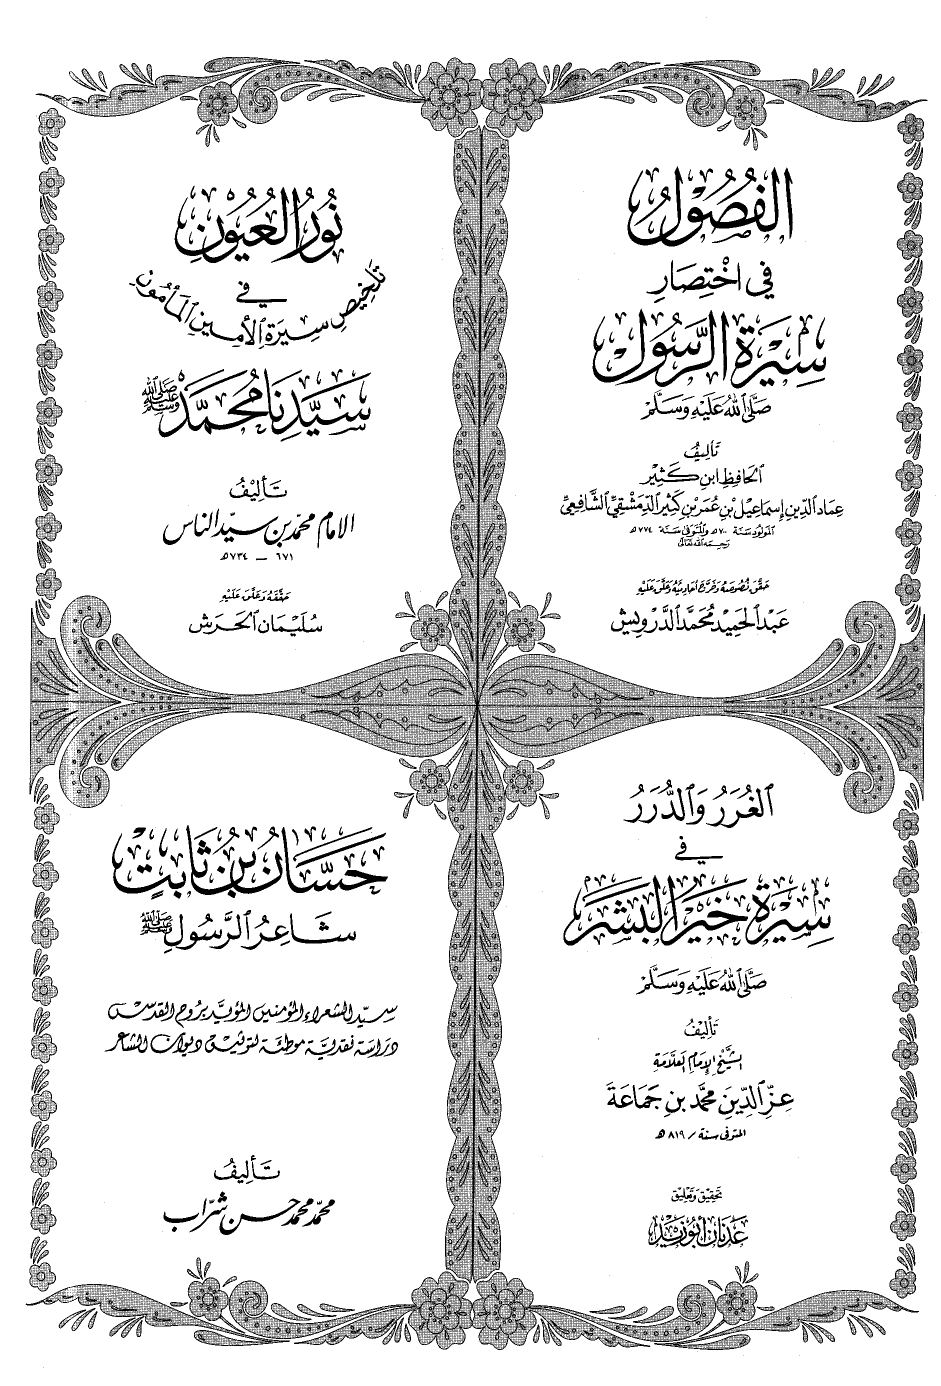 الفُصُولُ
في اخْتِصَارِ
سِيْرَةِ الرَّسُولِ
صَلَّى اللهُ عَلَيْهِ وَسَلَّمْ
تَأليفُ
الحَافِظِ ابنِ كَثِيْرٍ
عِمَادِ الدِّينِ إِسمَاعِيْل بْنِ عُمَر بْنِ كَثِيرِ الدِّمَشْقِيِّ الشَّافِعِيِّ
المَولُود سَنَة ٧٠٠ھ وَالمُتَوفَّى سَنَة ٧٧٤ھ
رَحِمَهُ اللهُ تَعَالَى
حَقَّقَ نُصُوصَهُ وَخَرَّجَ أَحَادِيثَهُ وَعَلَّقَ عَلَيْهِ
عَبْد الحَمِيْد مُحَمَّد الدَّرْوِيش
نُوْرُ العُيُوْنِ
في
تَلْخِيصِ سِيرَةِ الأَمِينِ المَأْمُونِ
سَيِّدِنَا مُحَمَّدٍ ﷺ
تَأليْفُ
الامام محمّد بن سيّد الناس
٦٧١ – ٧٣٤ھ
حَقَّقَهُ وَعَلَّقَ عَلَيْهِ
سُلَيمَان الحَرَش
الغُرَرُ وَالدُّرَرُ
في
سِيْرَةِ خَيْرِ البَشَرِ
صَلَّى اللهُ عَلَيْهِ وَسَلَّمْ
تَأليفُ
الشَّيْخِ الإِمَامِ العَلَّامَةِ
عِزِّ الدِّينِ محمَّد بنِ جَمَاعَةَ
المتوفى سنة / ٨١٩ ھ
تحقيق وتعليق
عَدنان أبوُزيْد
حَسَّانُ بْنُ ثَابِتٍ
شَاعِرُ الرَّسُولِ ﷺ
سيّد الشعراء المؤمنين المؤيّد بروح القدس
دراسة نقديّة موطئة لتوثيق ديوان الشاعر
تَأليفُ
محمّد محمّد حسن شُرّاب